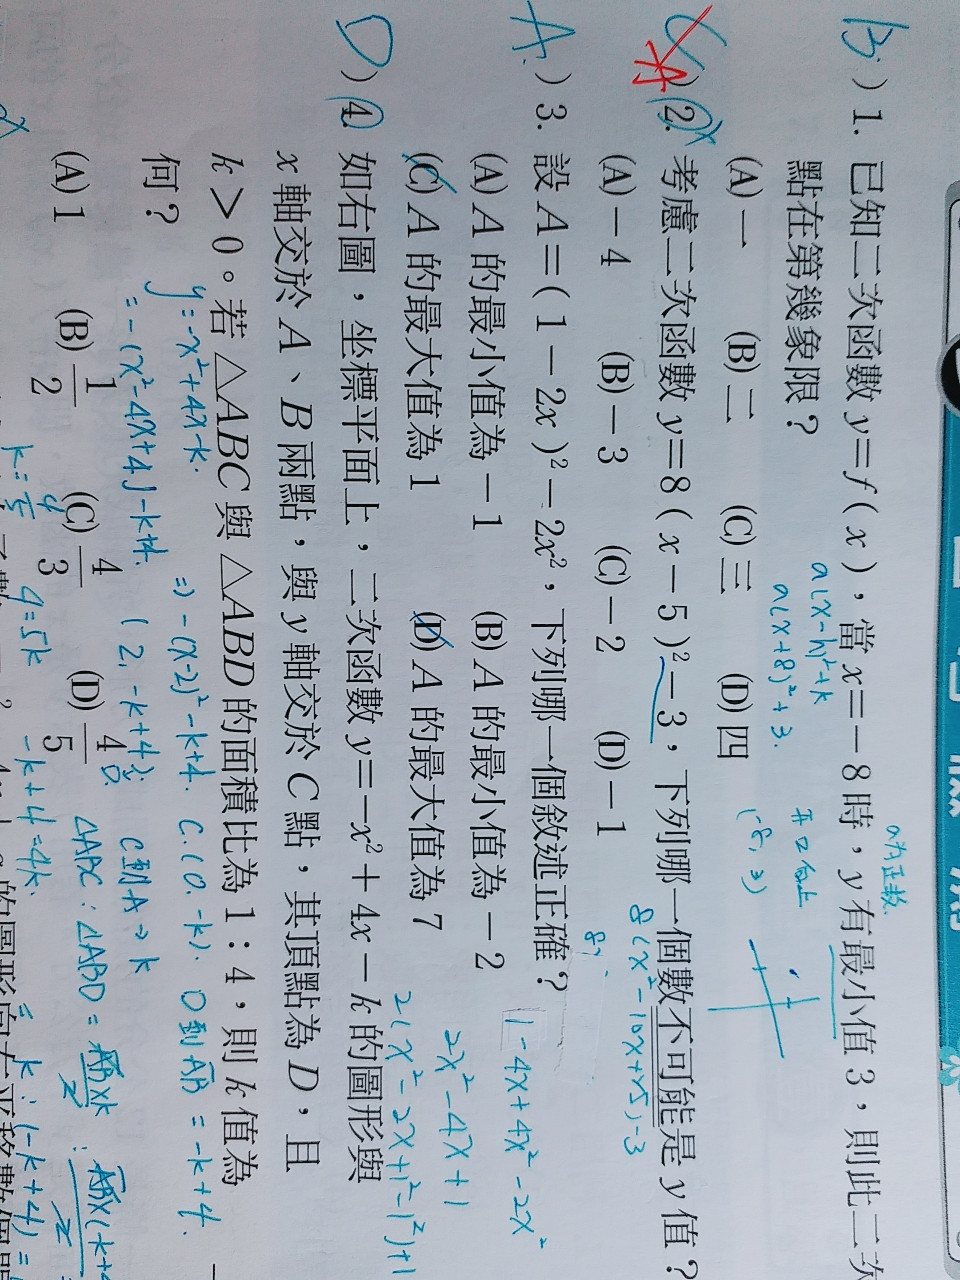 B.) 1. 已知二次函數 y=f(x),當 x=-8 時,y 有最小值 3,則此二次
點在第幾象限?
a為正數
a(x-h)²+k
a(x+8)²+3.
開口向上
(-8, 3)
(A) 一 (B) 二 (C) 三 (D) 四
A) 2. 考慮二次函數 y=8(x-5)²-3,下列哪一個數不可能是 y 值?
8(x²-10x+25)-3
(A) -4 (B) -3 (C) -2 (D) -1
A.) 3. 設 A=(1-2x)²-2x²,下列哪一個敘述正確?
1-4x+4x²-2x²
2x²-4x+1
2(x²-2x+1²-1²)+1
(A) A 的最小值為 -1 (B) A 的最小值為 -2
(C) A 的最大值為 1 (D) A 的最大值為 7
D) 4. 如右圖,坐標平面上,二次函數 y=-x²+4x-k 的圖形與
x 軸交於 A、B 兩點,與 y 軸交於 C 點,其頂點為 D,且
k>0。若 △ABC 與 △ABD 的面積比為 1:4,則 k 值為
何?
y=-x²+4x-k.
=-(x²-4x+4)-k+4.
⇒ -(x-2)²-k+4.
(2, -k+4)
C.(0.-k). D到AB=-k+4.
C到A→k
(A) 1 (B) 1/2 (C) 4/3 (D) 4/5
△ABC:△ABD=
4=5k
-k+4=4k.